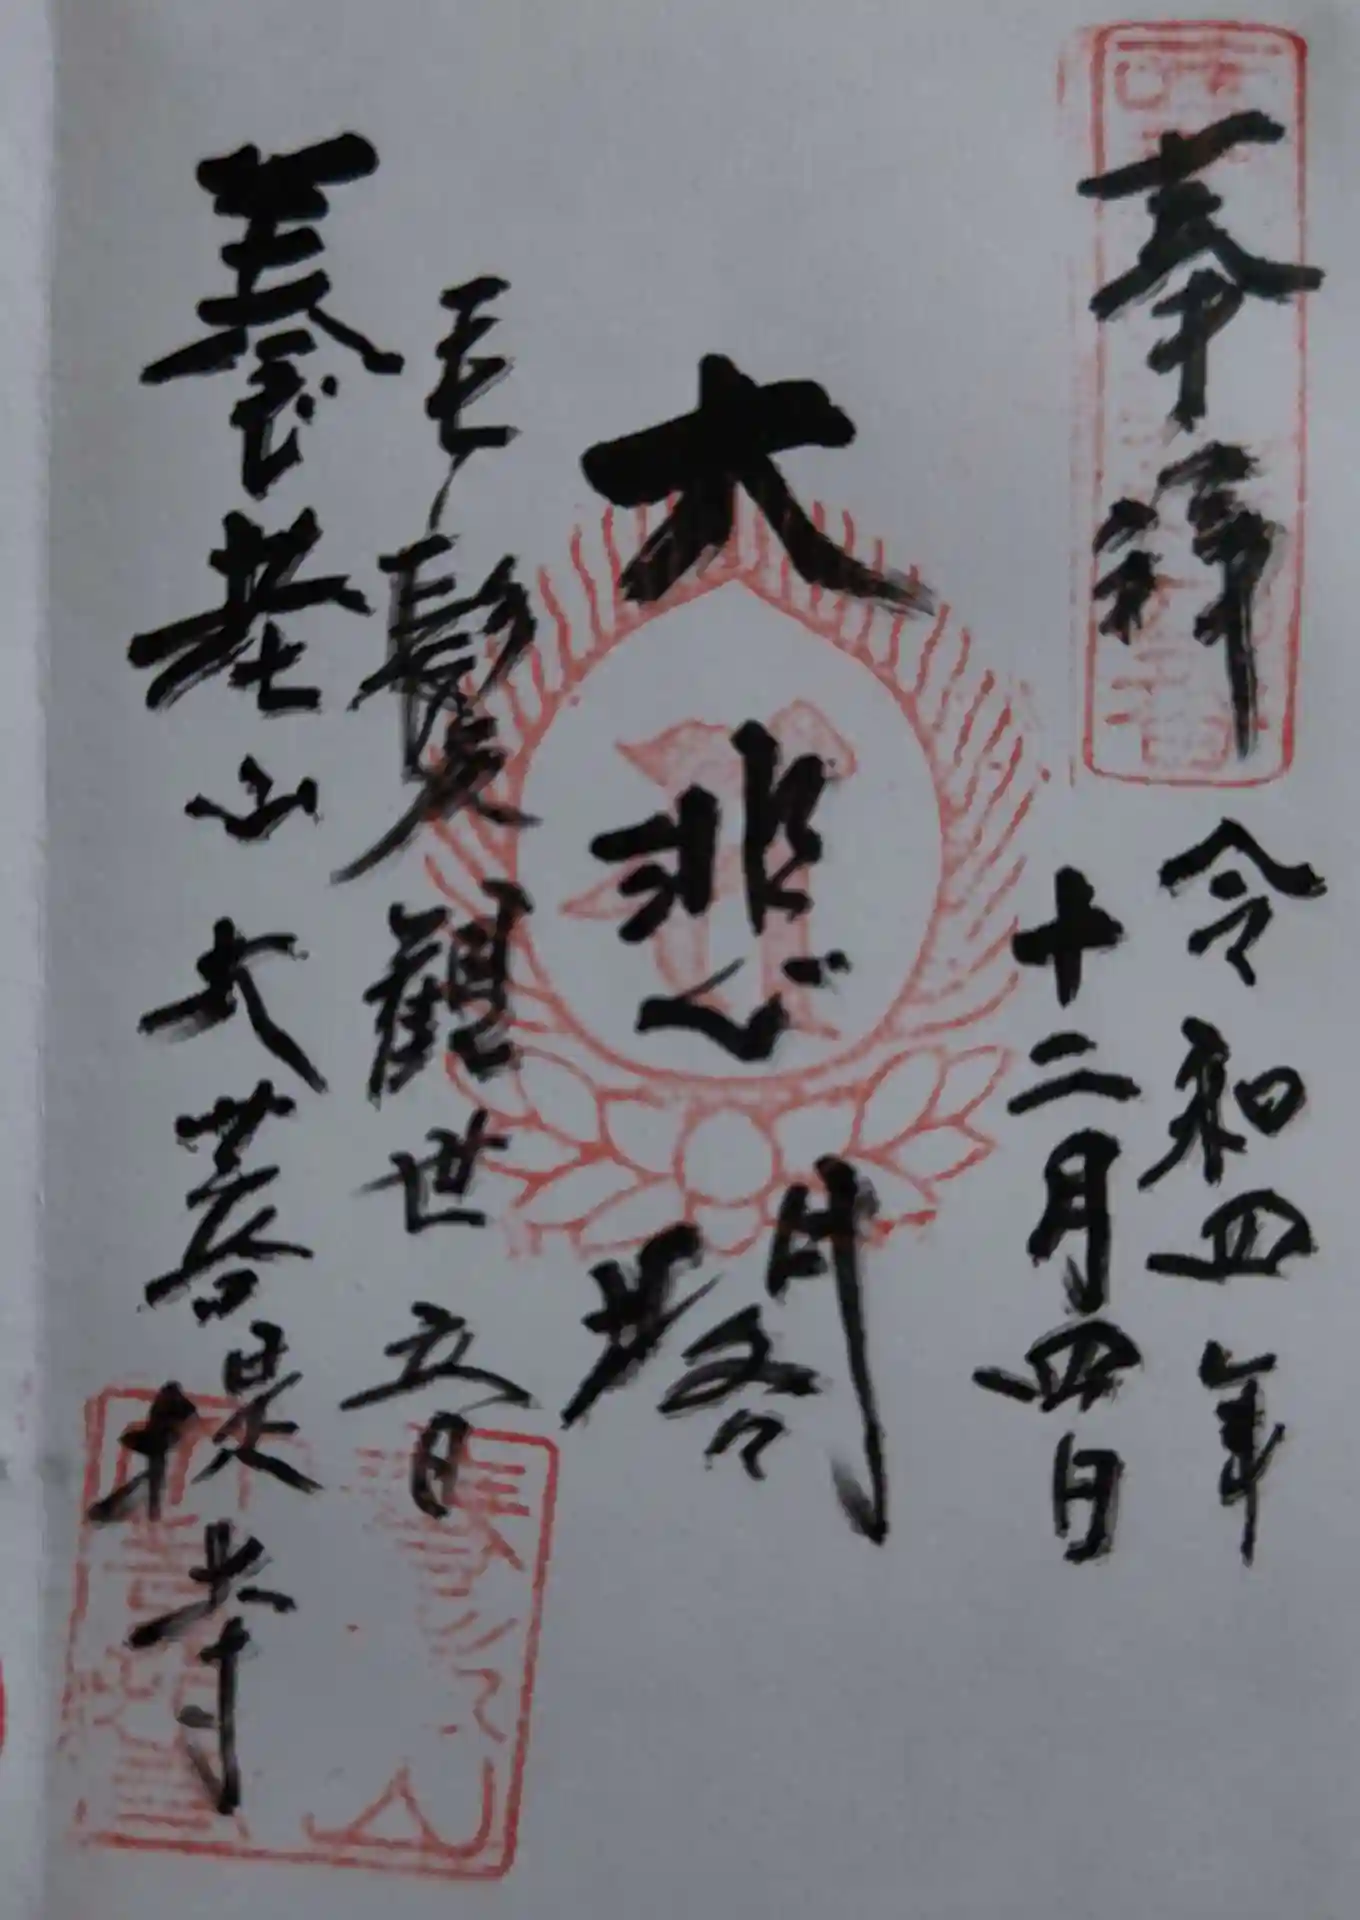 奉拝
令和四年
十二月四日
大悲閣
毛髮觀世音
養老山大菩提寺